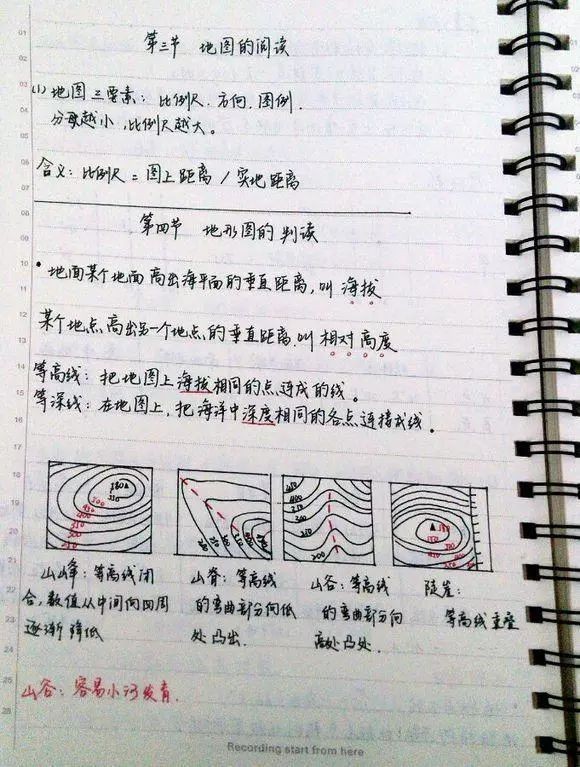 第三节 地图的阅读
(1) 地图三要素: 比例尺. 方向. 图例.
分母越小, 比例尺越大。
含义: 比例尺 = 图上距离 / 实地距离
第四节 地形图的判读
• 地面某个地面高出海平面的垂直距离, 叫海拔
某个地点高出另一个地点的垂直距离. 叫相对高度
等高线: 把地图上海拔相同的点连成的线。
等深线: 在地图上, 把海洋中深度相同的各点连接成线。
山峰: 等高线闭
合, 数值从中间向四周
逐渐降低
山脊: 等高线
的弯曲部分向低
处凸出.
山谷: 等高线
的弯曲部分向
高处凸处.
陡崖:
等高线重叠
山谷: 容易小河发育.
Recording start from here